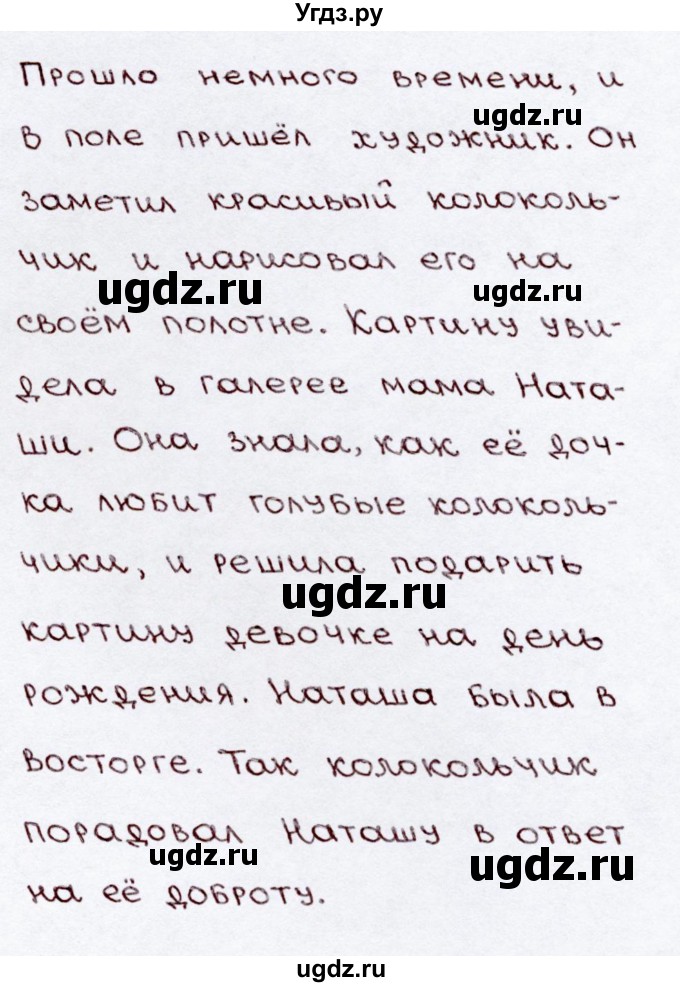 Угдз.ру
Прошло немного времени, и
в поле пришёл художник. Он
заметил красивый колоколь-
чик и нарисовал его на
своём полотне. Картину уви-
дела в галерее мама Ната-
ши. Она знала, как её доч-
ка любит голубые колоколь-
чики, и решила подарить
картину девочке на день
рождения. Наташа была в
восторге. Так колокольчик
порадовал Наташу в ответ
на её доброту.
ugdz.ru
ugdz.ru
ugdz.ru
ugdz.ru
ugdz.ru
ugdz.ru
ugdz.ru